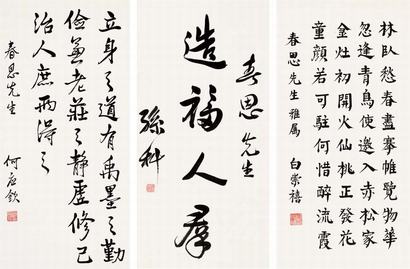 林臥愁春盡搴帷覽物華
忽逢青鳥使邀入赤松家
金灶初開火仙桃正發花
童顏若可駐何惜醉流霞
春思先生雅屬 白崇禧
春思先生
造福人羣
孫科
立身之道有禹墨之勤
儉兼老莊之靜虛修己
治人庶兩得之
春思先生
何應欽